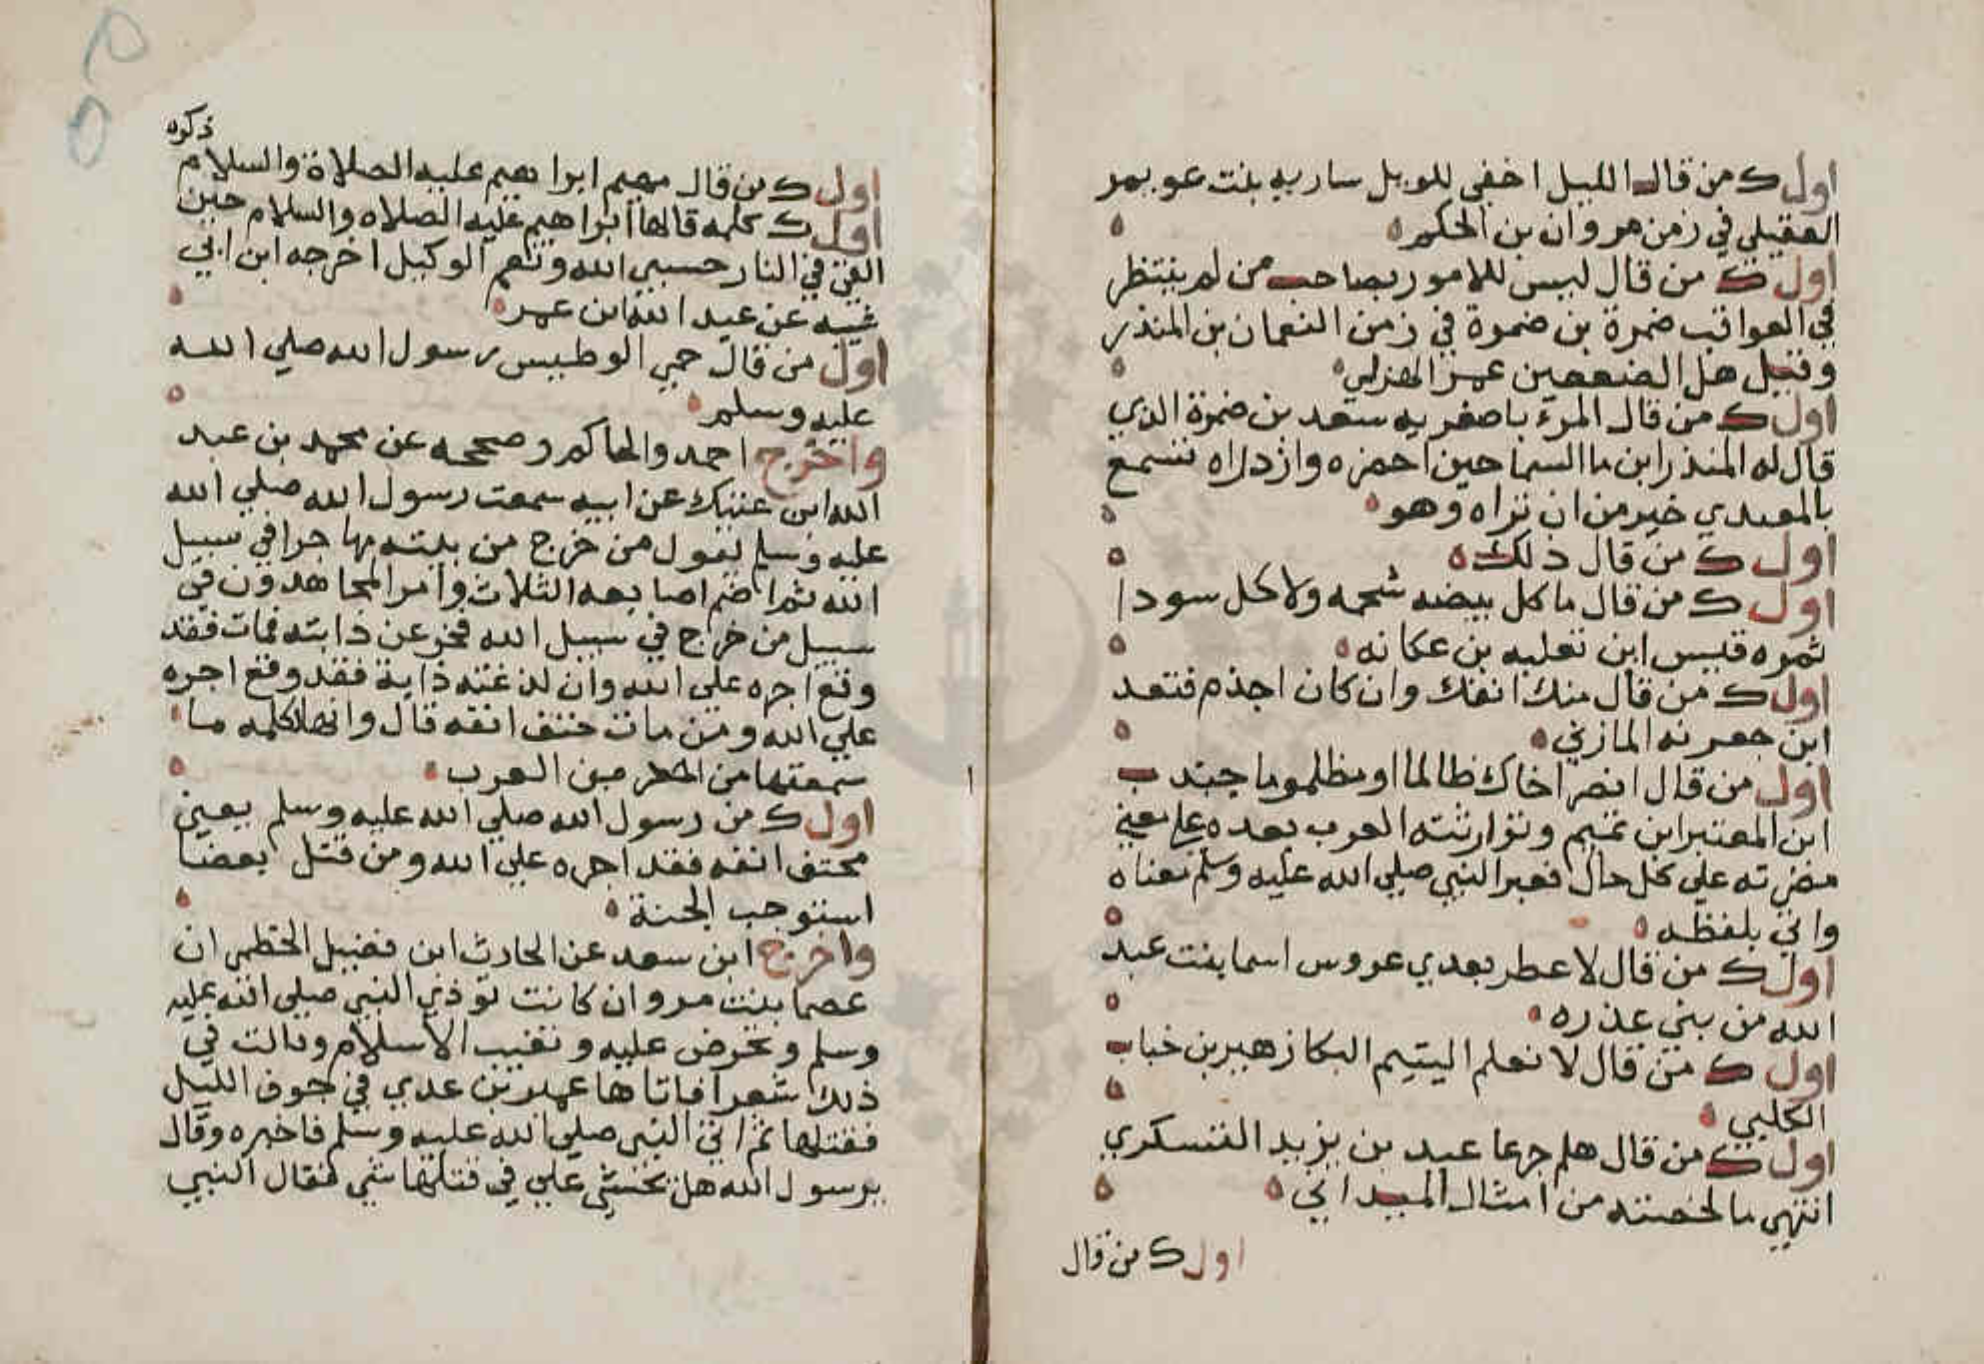 اول ك من قال الليل اخفي للويل ساريه بنت عويمر
العقيلي في زمن مروان بن الحكم
اول ك من قال ليس للامور بصاحب من لم ينتظر
في العواقب ضمرة بن ضمرة في زمن النعمان بن المنذر
وقيل هل الضنعمين عمر الهزلي
اول ك من قال المرء باصغريه سعد بن ضمرة الذي
قال له المنذر ابن ما السما حين احمزه وازدراه تسمع
بالمعيدي خير من ان تراه وهو
اول ك من قال ذلك
اول ك من قال ما كل بيضه شحمه ولا كل سودا
ثمره قيس ابن ثعلبه بن عكانه
اول ك من قال منك انفك وان كان اجذم قتعد
ابن جعرنه المازني
اول من قال انصر اخاك ظالما او مظلوما جندب
ابن المعتبر ابن تميم وتوارثته العرب بعده علي معني
مضرته علي كل حال فعبر النبي صلي الله عليه وسلم معناه
واتي بلفظه
اول ك من قال لا عطر بعدي عروس اسما بنت عبد
الله من بني عذره
اول ك من قال لا تعلم اليتيم البكا زهير بن خباب
الكلبي
اول ك من قال هلم جرعا عبد بن يزيد الننسكري
انتهي ما لخصته من امثال الميداني
اول ك من قال
ذكره
اول ك من قال مهيم ابراهيم عليه الصلاة والسلام
اول ك كلمه قالها ابراهيم عليه الصلاه والسلام حين
القي في النار حسبي الله ونعم الوكيل اخرجه ابن ابي
شيبه عن عبد الله ابن عمر
اول من قال حمي الوطيس رسول الله صلي الله
عليه وسلم
واخرج احمد والحاكم وصححه عن محمد بن عبد
الله ابن عتيك عن ابيه سمعت رسول الله صلي الله
عليه وسلم يقول من خرج من بيته مهاجرا في سبيل
الله ثم اضم اصابعه الثلاث وامر المجاهدون في
سبيل من خرج في سبيل الله فخر عن دابته فمات فقد
وقع اجره علي الله وان لدغته دابة فقد وقع اجره
علي الله ومن مات حتف انفه قال وانها لكلمه ما
سمعتها من احد من العرب
اول ك من رسول الله صلي الله عليه وسلم يعني
محتف انفه فقد اجره علي الله ومن قتل بعضا
استوجب الجنة
واخرج ابن سعد عن الحارث ابن فضيل الخطمي ان
عصما بنت مروان كانت توذي النبي صلي الله عليه
وسلم وتحرض عليه وتغيب الاسلام وقالت في
ذلك شعرا فاتاها عمير بن عدي في جوف الليل
فقتلها ثم اتي النبي صلي الله عليه وسلم فاخبره وقال
يرسول الله هل تخشي علي في قتلها شي فقال النبي